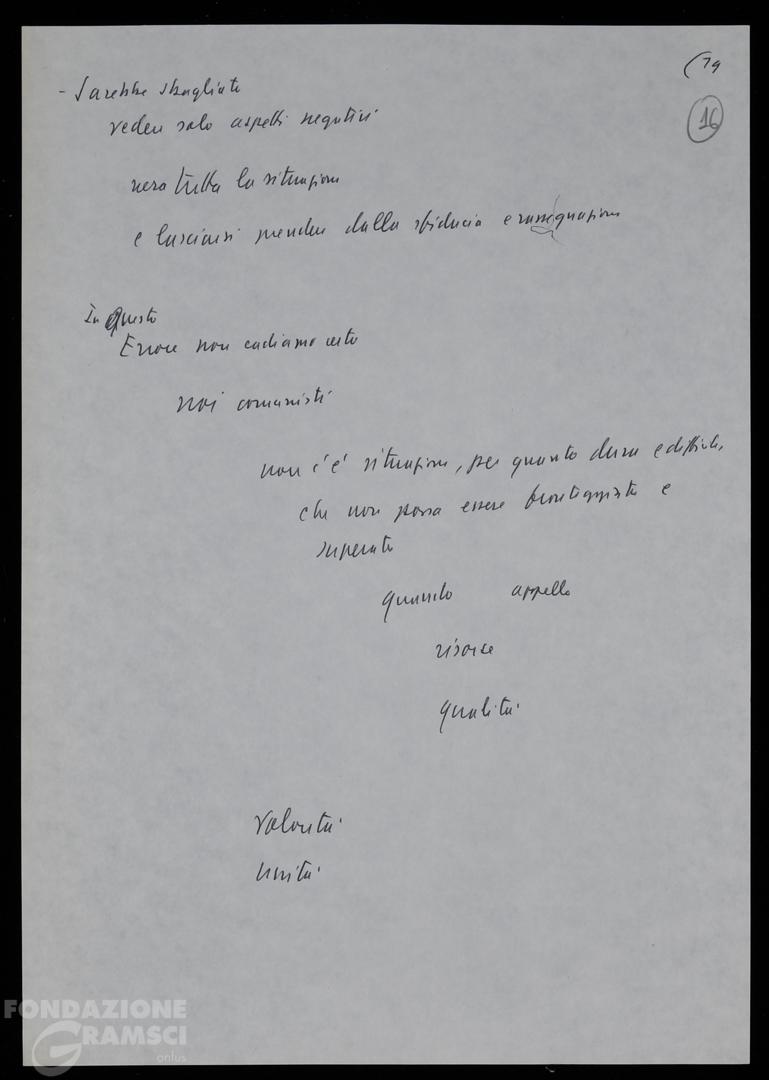 (19
16
- Sarebbe sbagliato
vedere solo aspetti negativi
nera tutta la situazione
e lasciarsi prendere dalla sfiducia e rassegnazione
In questo
Errore non cadiamo certo
noi comunisti
non c'è situazione, per quanto dura e difficile,
che non possa essere fronteggiata e
superata
quando appello
risorse
qualità
volontà
unità
FONDAZIONE
GRAMSCI
onlus